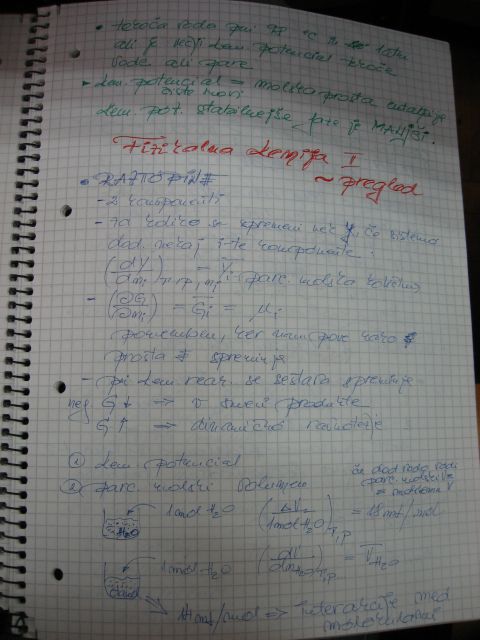 • tekoča voda pri °C in 1 atm
ali je večji kem. potencial tekoče
vode ali pare
► kem. potencial = molska prosta entalpija
čiste snovi
kem. pot. stabilnejše faze je MANJŠI.
Fizikalna kemija I
~ pregled
• RAZTOPINE
- 2 komponenti
- za koliko se spremeni nek Y, če sistemu
dod. nekaj i-te komponente:
(dY/dni)T,P,nj = Yi parc. molska količina
- (∂G/∂ni) = Gi = μi
pomemben, ker nam pove kako
prosta spreminja
- pri kem. reak. se sestava spreminja
neg. G ↓ ⇒ v smeri produkta
G ↑ ⇒ dinamično ravnotežje
① kem. potencial
② parc. molski volumen
če dod vodo vodi
parc. molski V
= molskemu V
1 mol H2O (ΔV/1mol H2O)T,P = 18 ml/mol
H2O
1 mol H2O (dV/dnH2O)T,P = VH2O
14 ml/mol ⇒ interakcije med
molekulami